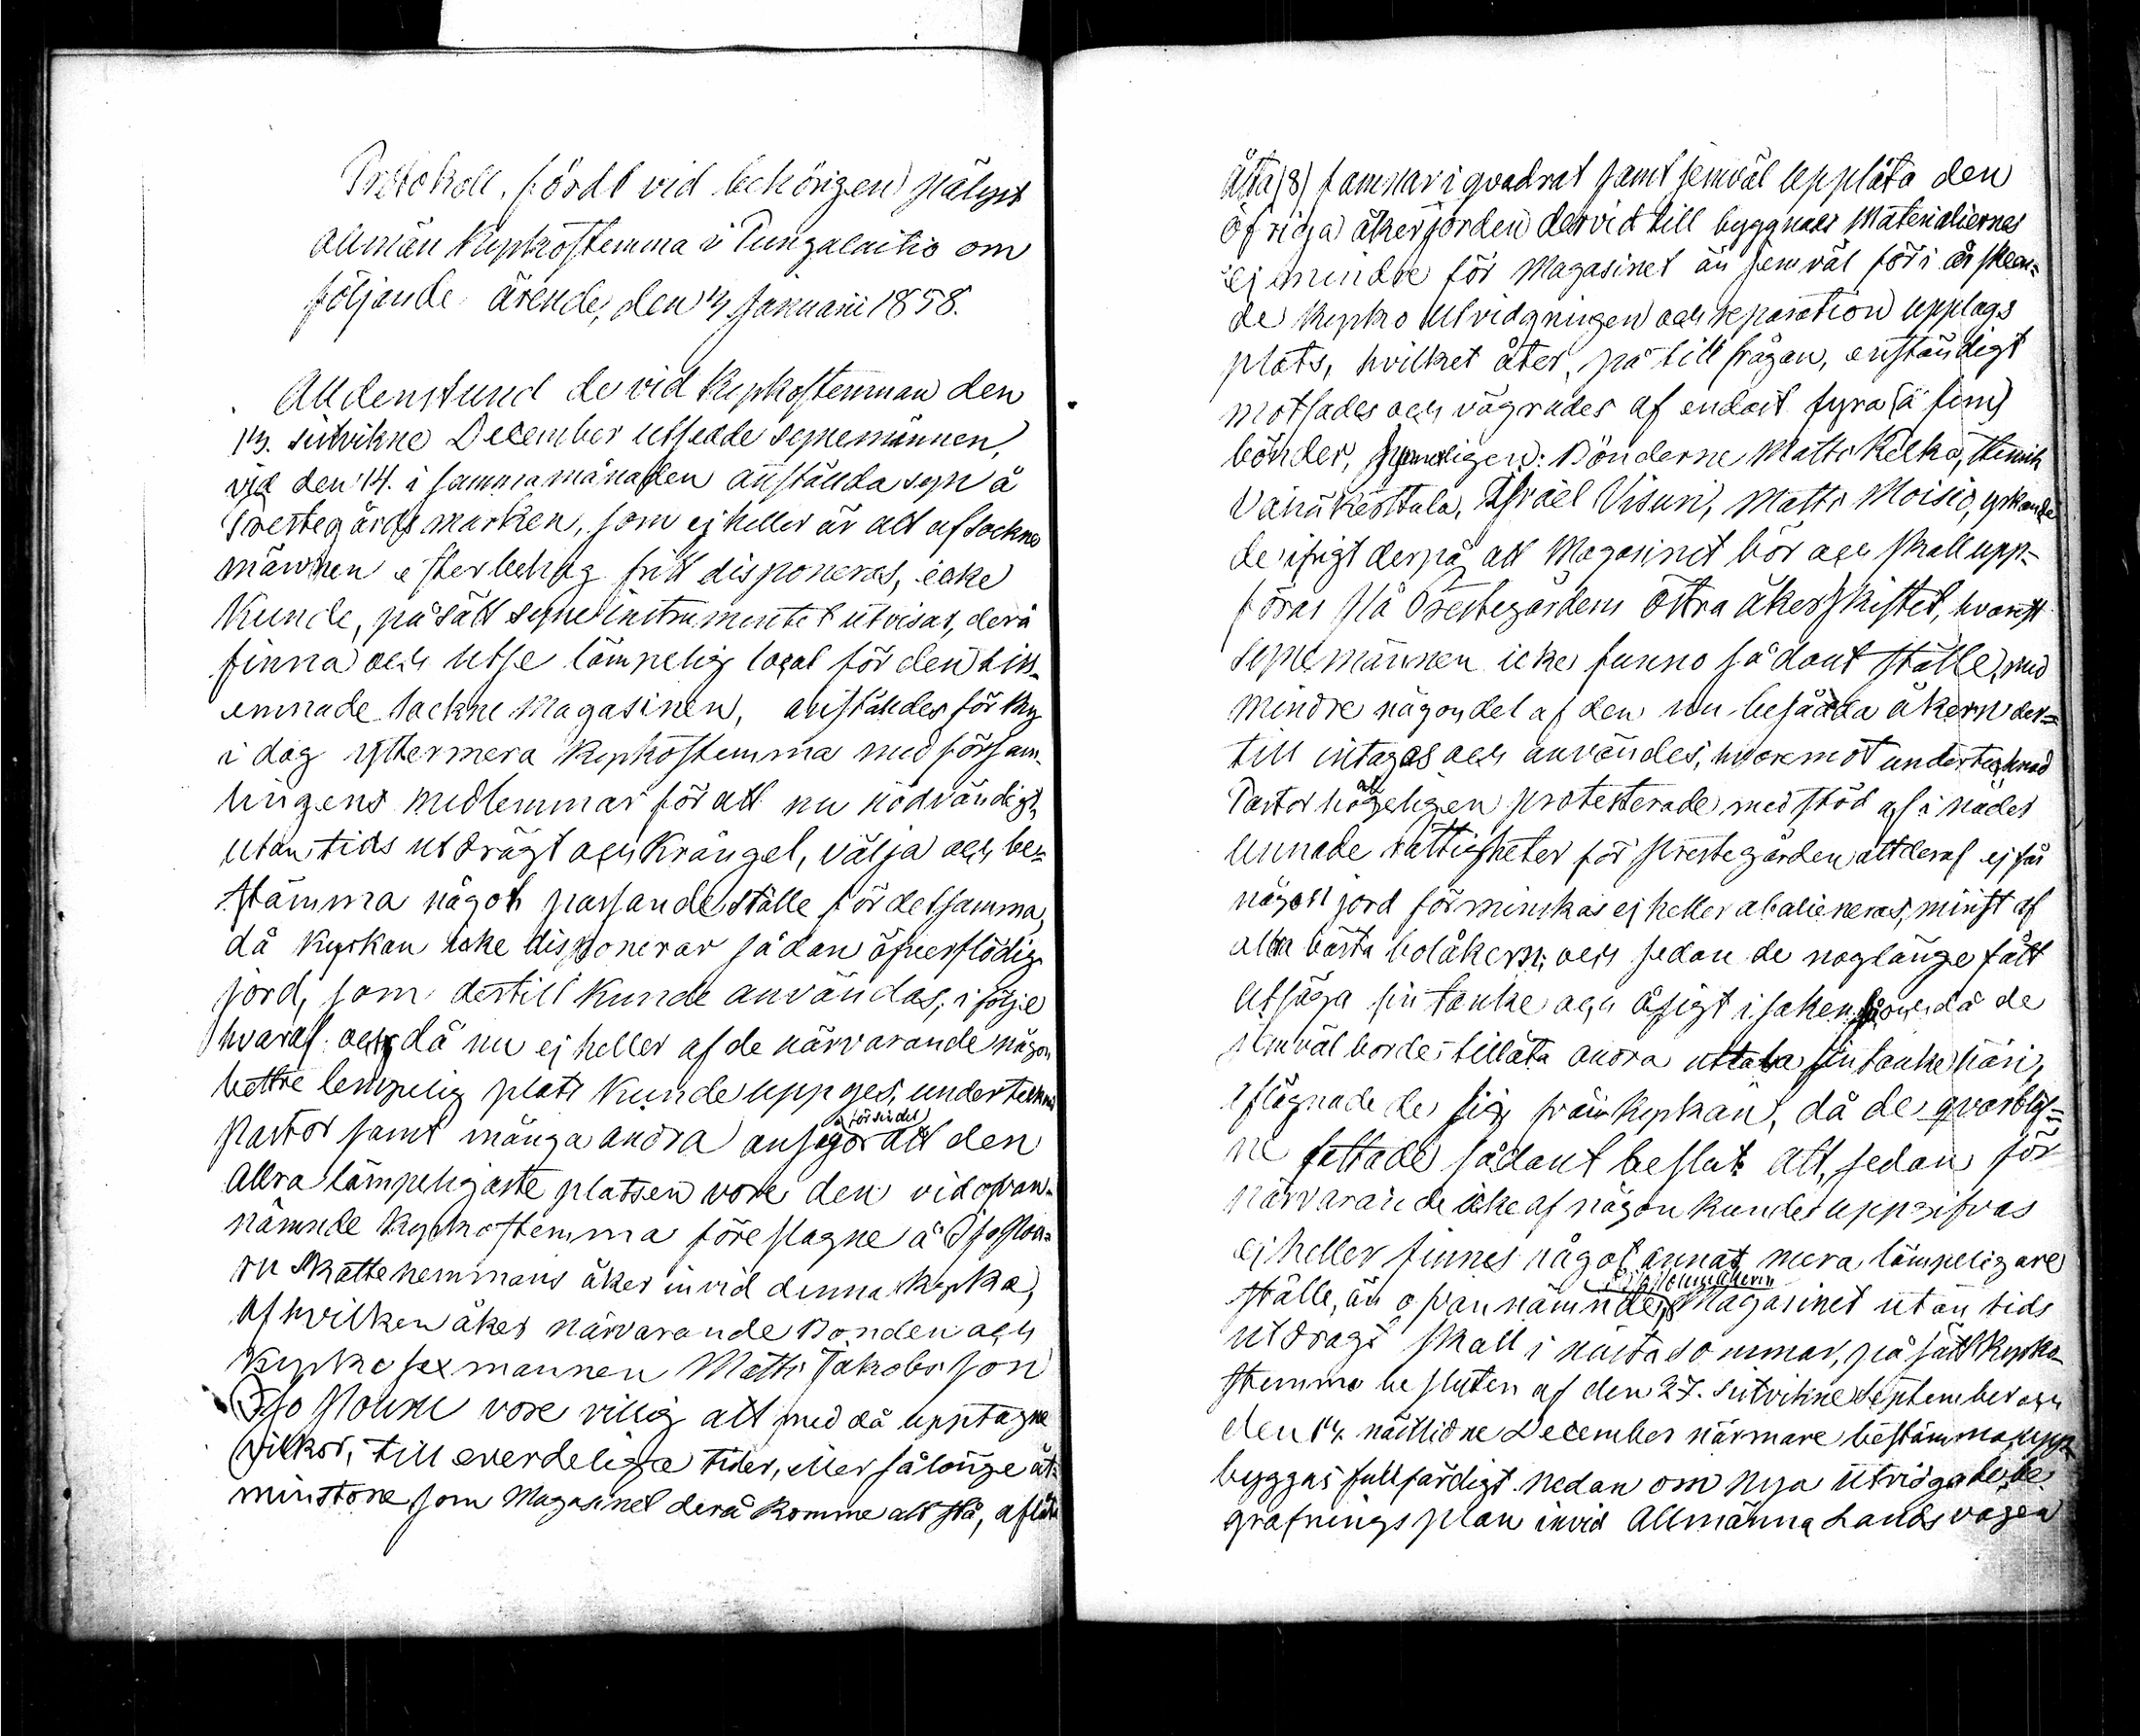 Protokoll, fördt vid behörigen pålyst
allmän Kyrkostemma i Pungalaitio om
följande ärende, den Januarii 1858.
Alldenstund de vid Kyrkostemman den
13. sistvikne December utsedde synemännen,
vid den 14. i samma månaden anstända syn å
Prestegårds marken, som ej heller är att af sockne
männen efter behag fritt disponeras, icke
kunde, på sätt syne instrumentet utvisar, derå
finna och utse lämpelig local för den till-
ernnade Sockne Magasinen, anstäldes för thy
i dag yttermera Kyrkostemma med försam-
lingens medlemmar för att nu nödvändigt,
utan tids utdrägt och krångel, välja och be-
stämma något passande ställe för detsamma,
då Kyrkan icke disponerar sådan öfverflödig
jord, som dertill kunde användas; i följe
hvaraf och då nu ej heller af de närvarande någon
bettre lempelig plats kunde uppges, undertecknad
Pastor samt många andra ansågo för sin del att den
Allra lämpeligaste platsen vore den vid ofvan-
nämnde Kyrkostemma föreslagne å Iso
ru Skattehemmans åker invid denna kyrka,
af hvilken åker närvarande Bonden och
Kyrko sexmannen Matts Jakobsson
Iso vore villig att med då upptagne
vilkor, till everdeliga tider, eller så länge åt-
minstone som Magasinet derå komme att stå, aflåta
Åtta (8) famnar i qvadrat samt jemväl upplåta den
öfriga åkerjorden dervid till byggnads Materialiernes
ej mindre för Magasinet än jemväl för i år skeen-
de Kyrko Utvidgningen och reparation upplags
plats, hvilket åter, på tillfrågan, enständigt
motsades och vägrades af endast fyra (à fem)
bönder, nemligen: Bönderne Matts Kelka, Henrik
Vainiokesttula, Israel Visuri, Matts Moisio, yrkande
de ifrigt derpå att Magasinet bör och skall upp-
föras på Prestegårdens östra åkerskiftet, hvarest
synemännen icke funno sådant ställe, med
mindre någon del af den nu besådda åkern der-
till intages och användes, hvaremot undertecknad
Pastor högeligen protesterade med stöd af i nåder
unnade rättigheter för Prestegården att deraf ej får
någon jord förminskas ej heller abalieneras, minst af
allra bästa bolåkern; och sedan de nog länge fått
utsäga sin tanke och åsigt i saken, då de
jemväl borde tillåta andra uttala sin tanke häri,
aflägnade de sig från Kyrkan, då de qvarblif-
ne fattade sådant beslut: Att, sedan för
närvarande icke af någon kunde uppgifvas
ej heller finnes något annat mera lämpeligare
ställe, än ofvannämnde, Magasinet utan tids
utdrägt skall i nästa sommar, på sätt Kyrko-
stemma besluten af den 27. sistvikne September och
den 14. nästlidne December närmare bestämma, upp-
byggas fullfärdigt nedan om nya utvidgade be-
grafningsplan invid Allmänna Landsvägen